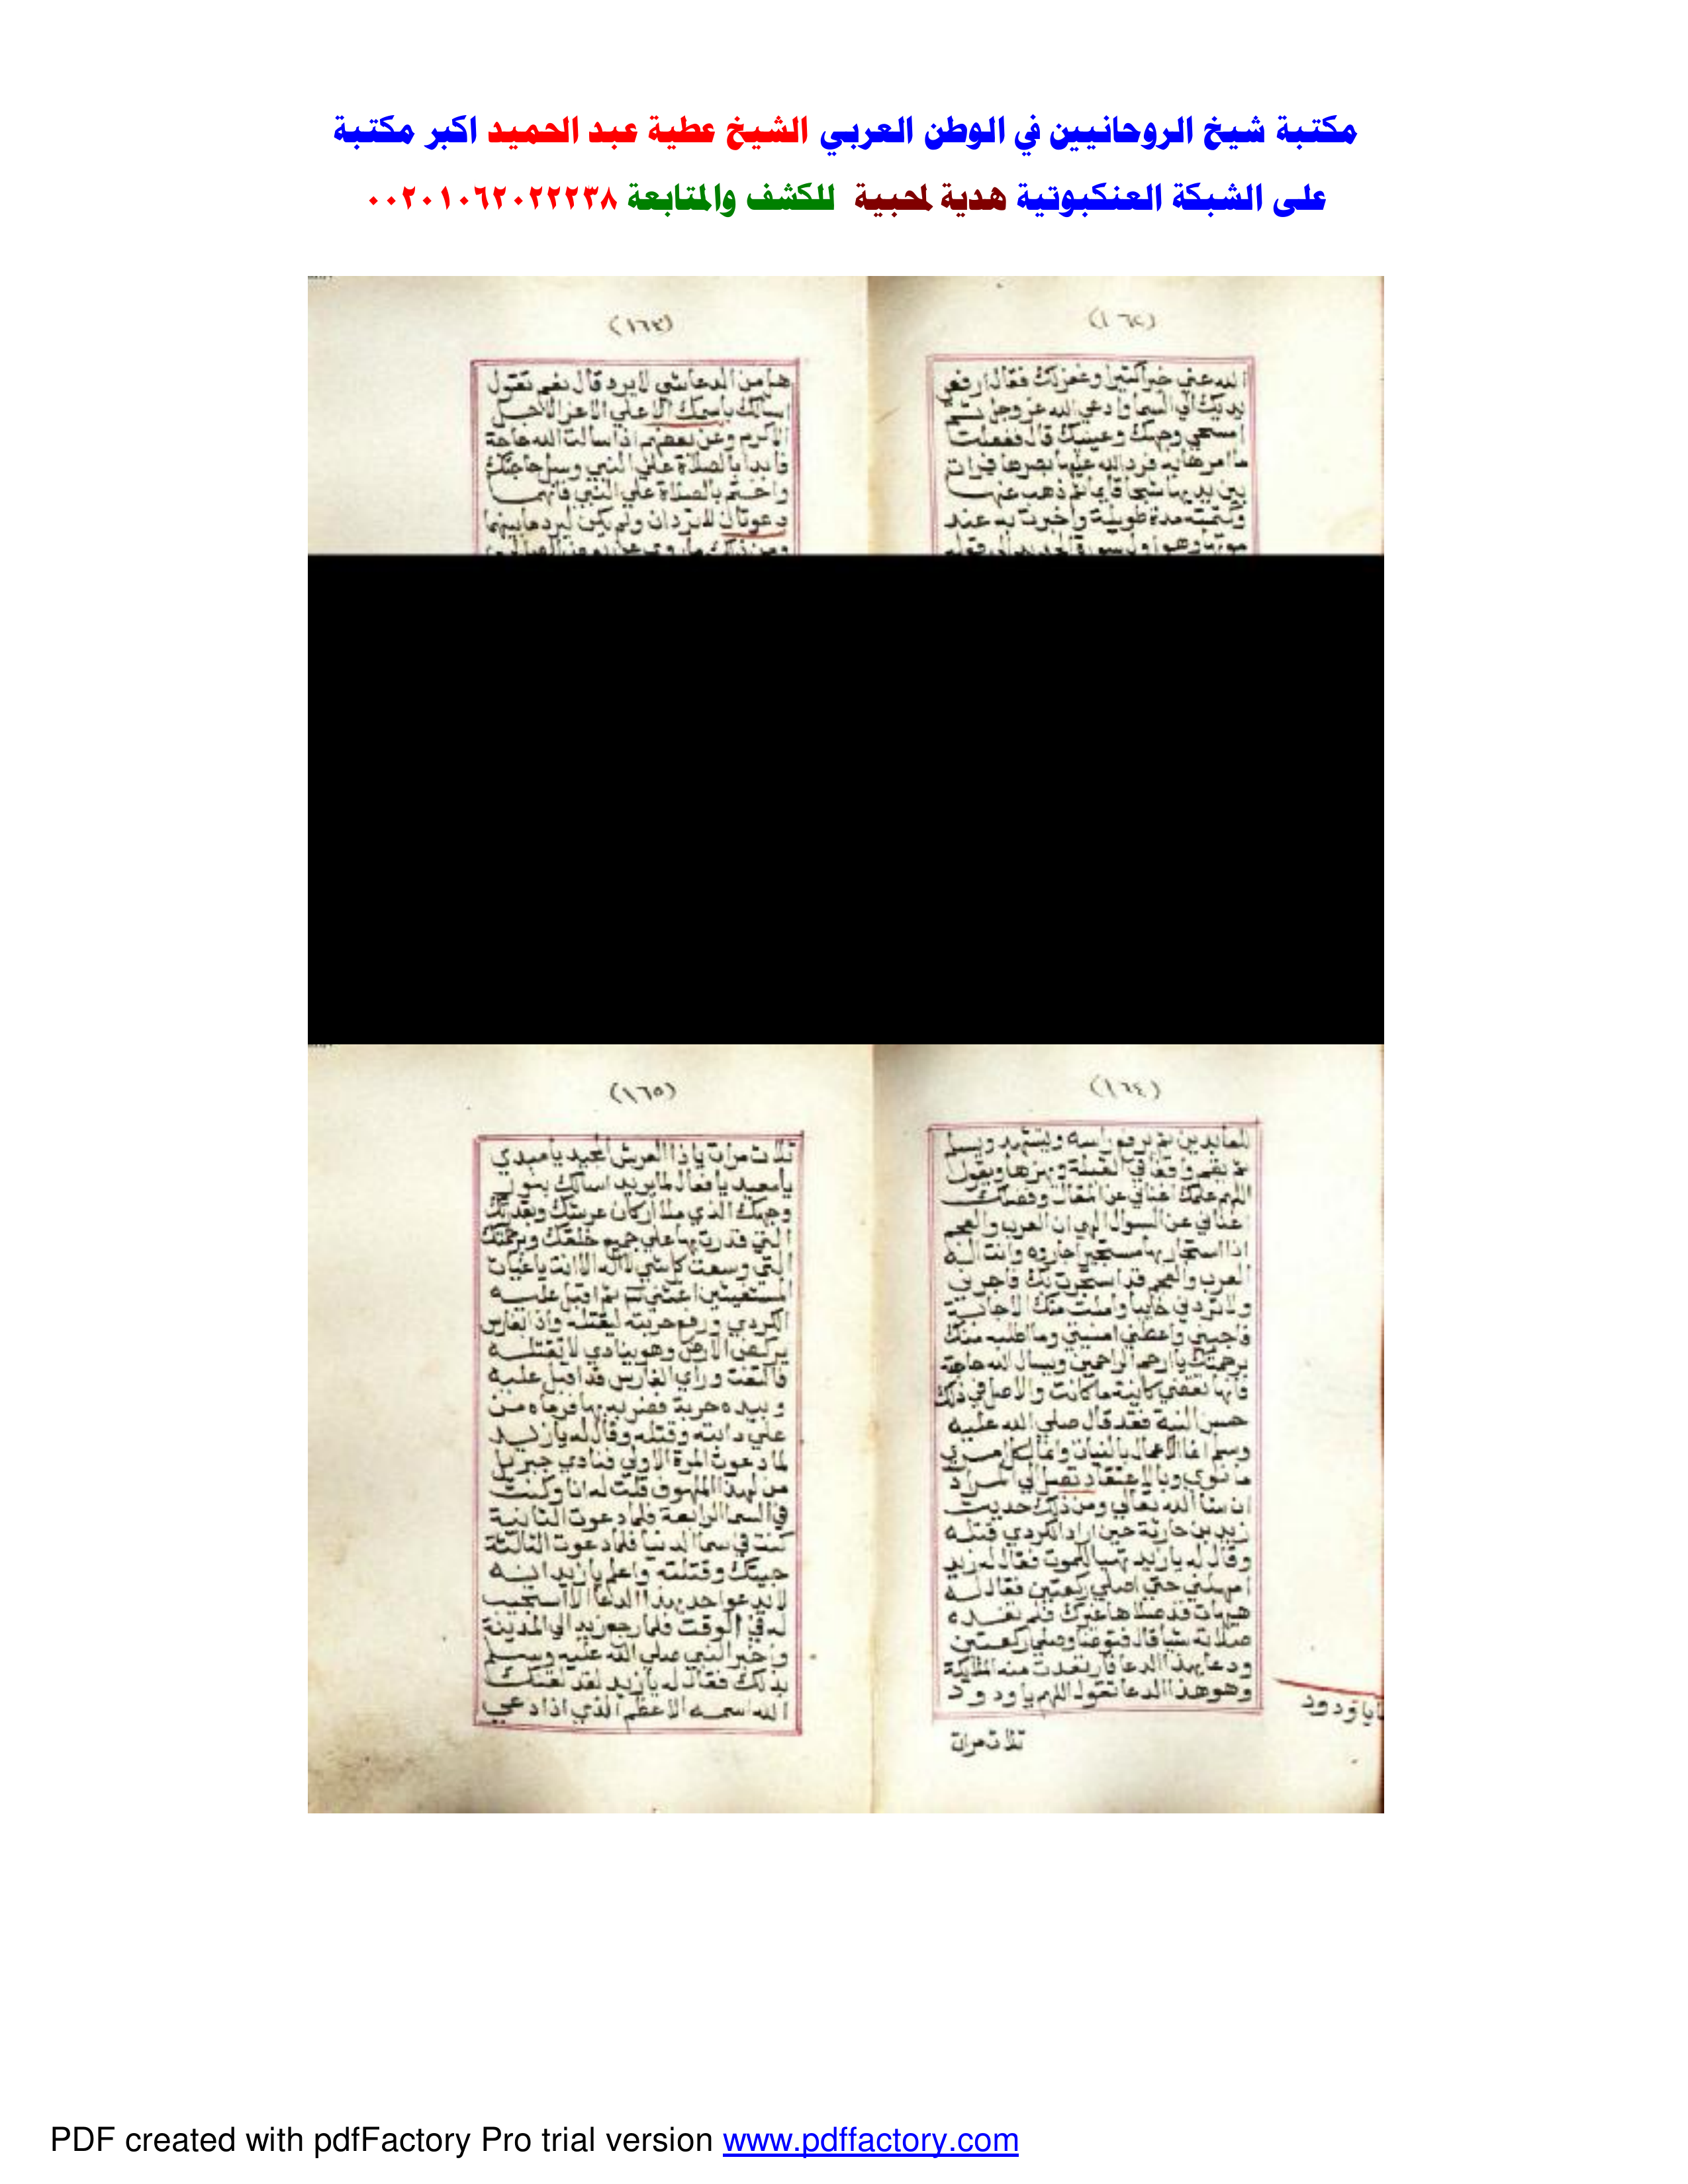 مكتبة شيخ الروحانيين في الوطن العربي الشيخ عطية عبد الحميد اكبر مكتبة
على الشبكة العنكبوتية هدية لمحبية للكشف والمتابعة ٠٠٢٠١٠٦٢٠٢٢٢٣٨
(١٦٢)
الله عني خيرا كثيرا وغفر لك فقال ارفعي
يديك الي السما وادعي الله عز وجل ثم
امسحي وجهك وعينيك قال ففعلت
ما امرها به فرد الله عليها بصرها فرات
بين يديها شيخا قايما ثم ذهب عنها
وكتمته مدة طويلة واخبرت به عند
موتها وهو اول سورة الحديد الي قوله
(١٦٣)
هل من الدعا شي لا يرد قال نعم تقول
اسالك باسمك الاعلي الاعز الاجل
الاكرم وعن بعضهم اذا سالت الله حاجة
فابدا بالصلاة علي النبي وسل حاجتك
واختم بالصلاة علي النبي فانهما
دعوتان لا تردان ولم يكن ليرد ما بينهما
ومن ذلك ما روي عن
(١٦٤)
للعابدين ثم يرفع راسه ويتشهد ويسلم
ثم يقف واقفا في القبلة ويقول
اللهم علمك اغناني عن المقال وفضلك
اغناني عن السوال الهي ان العرب والعجم
اذا استجار بها مستجير اجاروه وانت اله
العرب والعجم قد استجرت بك فاجرني
ولا تردني خايبا وطلبت منك الاجابة
فاجبني واعطني امنيتي وما اطلبه منك
برحمتك يا ارحم الراحمين ويسال الله حاجة
فانها تقضي كاينة ما كانت والاصل في ذلك
حسن النية فقد قال صلي الله عليه
وسلم انما الاعمال بالنيات وانما لكل امري
ما نوي وبالاعتقاد تصل الي المراد
ان شا الله تعالي ومن ذلك حديث
زيد بن حارثة حين اراد الكردي قتله
وقال له يا زيد تهيا للموت فقال له زيد
امهلني حتي اصلي ركعتين فقال له
هيهات قد صلاها غيرك فلم تفده
صلاته شيا قال فتوضا وصلي ركعتين
ودعا بهذا الدعا فارتعدت منه الملايكة
وهو هذا الدعا تقول اللهم يا ودود
يا ودود
ثلاث مرات
(١٦٥)
ثلاث مرات يا ذا العرش المجيد يا مبدي
يا معيد يا فعال لما يريد اسالك بنور
وجهك الذي ملا اركان عرشك وبقدرتك
التي قدرت بها علي جميع خلقك وبرحمتك
التي وسعت كل شي لا اله الا انت يا غياث
المستغيثين اغثني ثم اقبل عليه
الكردي ورفع حربته ليقتله واذا بفارس
يركض الارض وهو ينادي لا تقتله
فالتفت وراي الفارس قد اقبل عليه
وبيده حربة فضربه بها فرماه من
علي دابته وقتله وقال له يا زيد
لما دعوت المرة الاولي فنادي جبريل
من لهذا الملهوف قلت له انا وكنت
في السما الرابعة فلما دعوت الثانية
كنت في سما الدنيا فلما دعوت الثالثة
جيتك وقتلته واعلم يا زيد انه
لا يدعو احد بهذا الدعا الا استجيب
له في الوقت فلما رجع زيد الي المدينة
واخبر النبي صلي الله عليه وسلم
بذلك فقال له يا زيد لقد لقنك
الله اسمه الاعظم الذي اذا دعي
PDF created with pdfFactory Pro trial version www.pdffactory.com